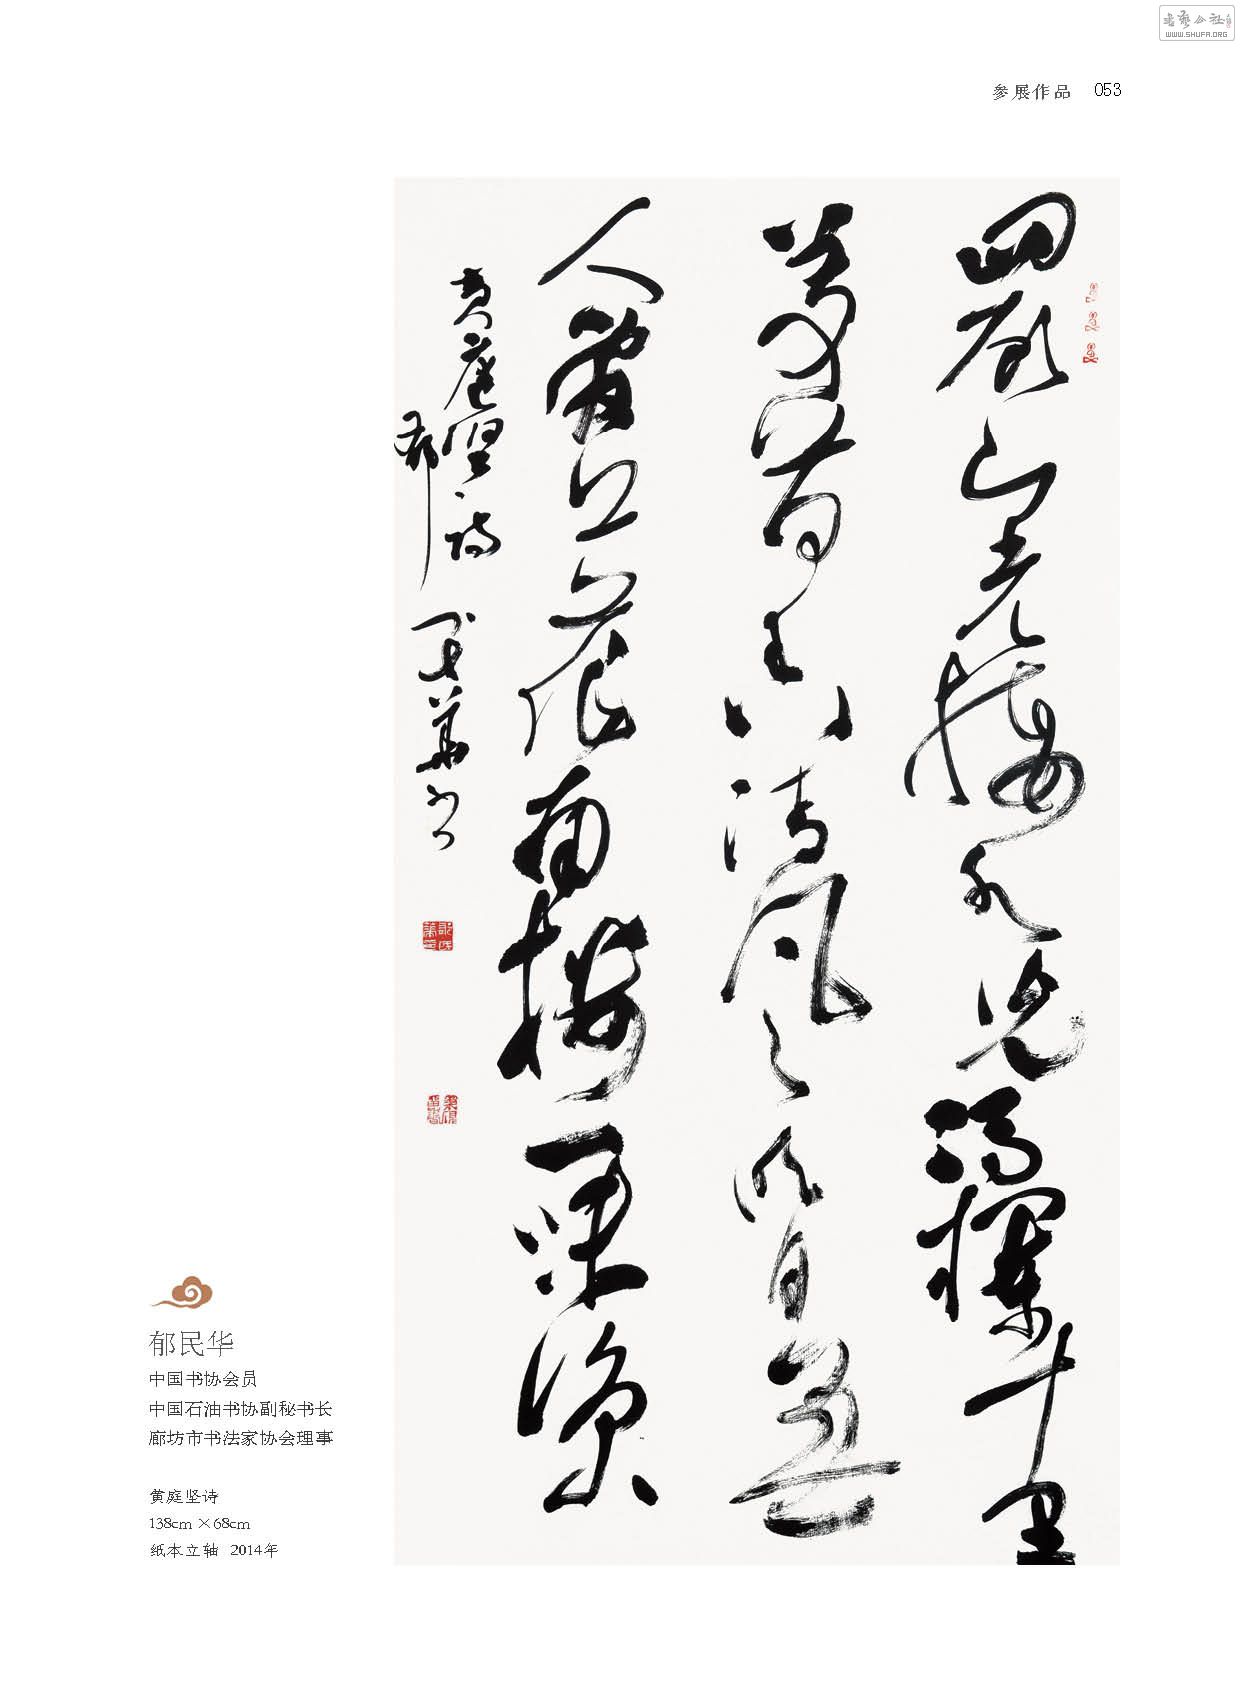 书艺公社
WWW.SHUFA.ORG
参展作品 053
四顧山光接水光憑欄十里
芰荷香清風明月無
人管並作南樓一味涼
黄庭坚詩
郁民華书
郁民华
中国书协会员
中国石油书协副秘书长
廊坊市书法家协会理事
黄庭坚诗
138cm×68cm
纸本立轴 2014年